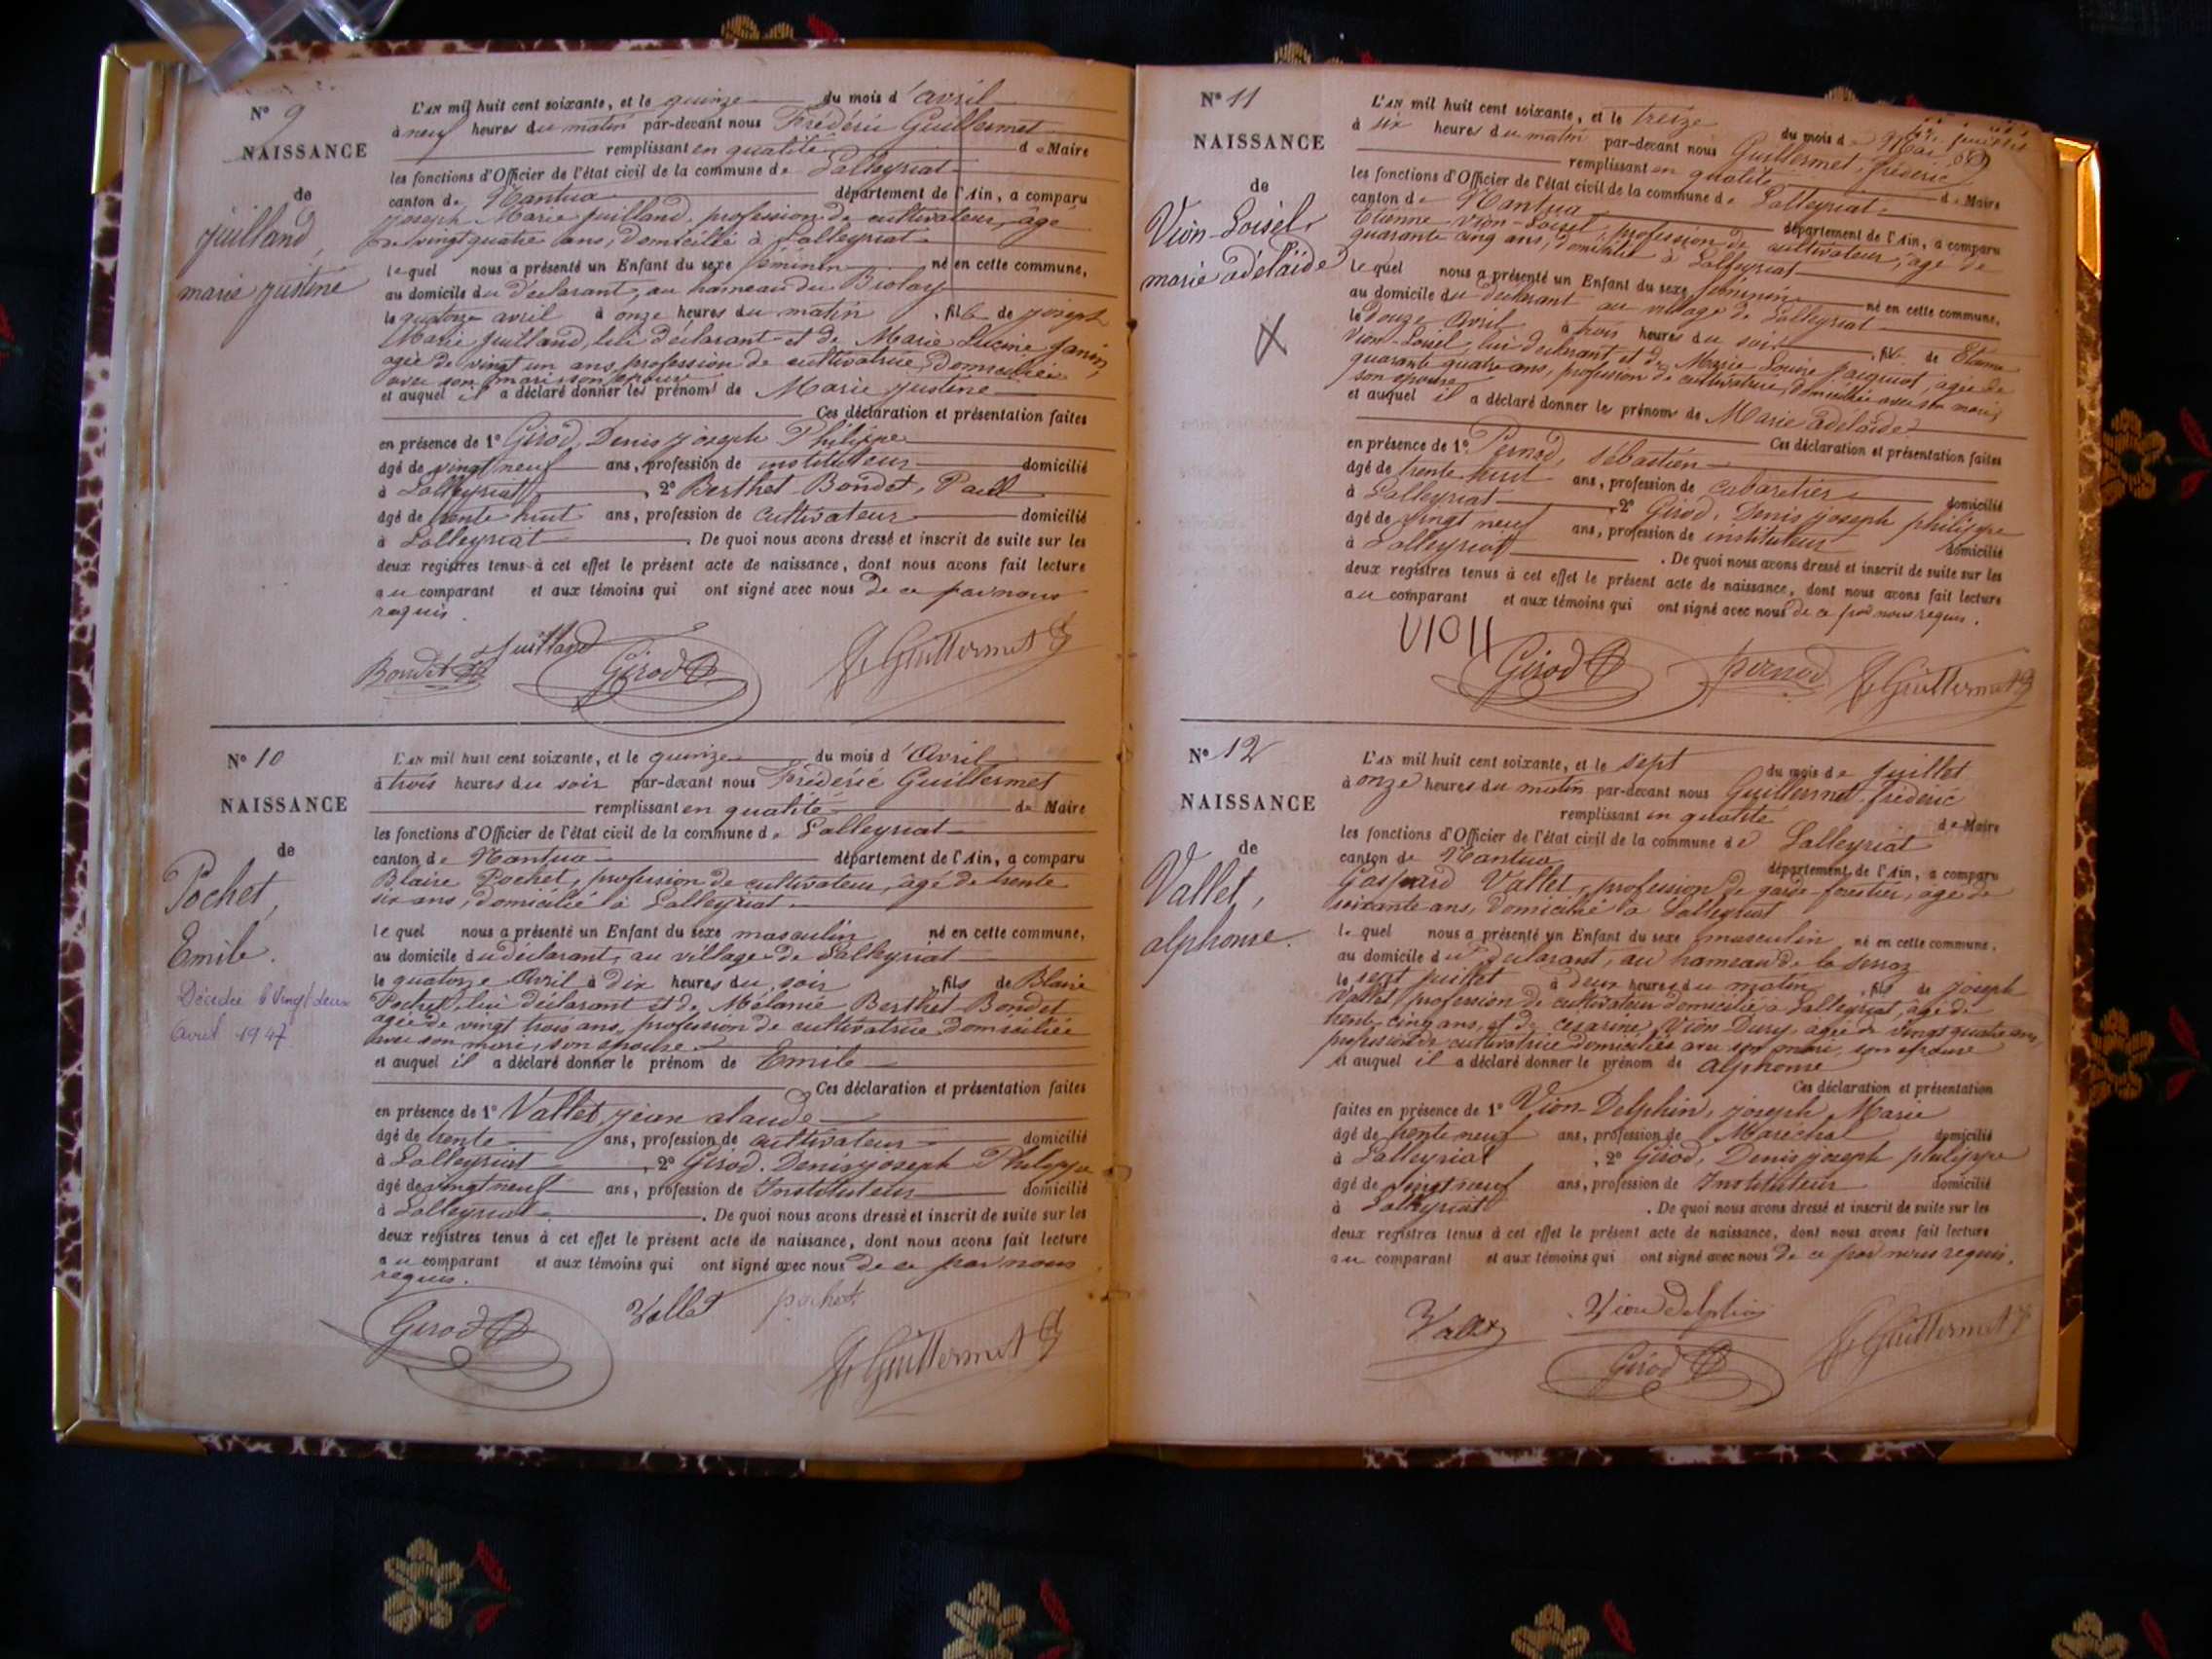 N° 9
NAISSANCE
de
Juilland,
marie justine
L'AN mil huit cent soixante, et le quinze du mois d'avril
à neuf heures du matin par-devant nous Frédéric Guillermet
remplissant en qualité de Maire
les fonctions d'Officier de l'état civil de la commune de Lalleyriat
canton de Nantua département de l'Ain, a comparu
joseph Marie juilland, profession de cultivateur, âgé
de vingt quatre ans, domicilié à Lalleyriat
lequel nous a présenté un Enfant du sexe féminin né en cette commune,
au domicile du déclarant, au hameau du Biolay
le quatorze avril à onze heures du matin, fille de joseph
Marie juilland, lui déclarant et de Marie Lucine Janin,
agée de vingt un ans, profession de cultivatrice, domiciliée
avec son mari, son épouse
et auquel il a déclaré donner les prénoms de Marie justine
Ces déclaration et présentation faites
en présence de 1° Girod, Denis joseph Philippe
âgé de vingt neuf ans, profession de instituteur domicilié
à Lalleyriat, 2° Berthet-Bondet, Paul
âgé de trente huit ans, profession de cultivateur domicilié
à Lalleyriat. De quoi nous avons dressé et inscrit de suite sur les
deux registres tenus à cet effet le présent acte de naissance, dont nous avons fait lecture
au comparant et aux témoins qui ont signé avec nous de ce par nous
requis.
Juilland
Bondet Girod Guillermet
N° 10
NAISSANCE
de
Pochet,
Emile.
Décédé le vingt deux
avril 1947
L'AN mil huit cent soixante, et le quinze du mois d'Avril
à trois heures du soir par-devant nous Frédéric Guillermet
remplissant en qualité de Maire
les fonctions d'Officier de l'état civil de la commune de Lalleyriat
canton de Nantua département de l'Ain, a comparu
Blaise Pochet, profession de cultivateur, âgé de trente
six ans, domicilié à Lalleyriat
lequel nous a présenté un Enfant du sexe masculin né en cette commune,
au domicile du déclarant, au village de Lalleyriat
le quatorze Avril à dix heures du soir, fils de Blaise
Pochet, lui déclarant et de Mélanie Berthet-Bondet
agée de vingt trois ans, profession de cultivatrice domiciliée
avec son mari, son épouse
et auquel il a déclaré donner le prénom de Emile
Ces déclaration et présentation faites
en présence de 1° Vallet, jean claude
âgé de trente ans, profession de cultivateur domicilié
à Lalleyriat, 2° Girod, Denis joseph Philippe
âgé de vingt neuf ans, profession de Instituteur domicilié
à Lalleyriat. De quoi nous avons dressé et inscrit de suite sur les
deux registres tenus à cet effet le présent acte de naissance, dont nous avons fait lecture
au comparant et aux témoins qui ont signé avec nous de ce par nous
requis.
Girod Vallet pochet
Guillermet
N° 11
NAISSANCE
de
Vion-Loisel,
marie adélaïde
L'AN mil huit cent soixante, et le treize du mois de Mai
à six heures du matin par-devant nous Guillermet, fréderic
remplissant en qualité de Maire
les fonctions d'Officier de l'état civil de la commune de Lalleyriat
canton de Nantua département de l'Ain, a comparu
Etienne Vion-Loisel, profession de cultivateur, âgé de
quarante cinq ans, domicilié à Lalleyriat
lequel nous a présenté un Enfant du sexe féminin né en cette commune,
au domicile du déclarant au village de Lalleyriat
le douze Avril à trois heures du soir, fille de Etienne
Vion-Loisel, lui déclarant et de Marie Louise Jacquiot, agée de
quarante quatre ans, profession de cultivatrice, domiciliée avec son mari,
son épouse
et auquel il a déclaré donner les prénoms de Marie adélaïde
Ces déclaration et présentation faites
en présence de 1° Pernod, Sébastien
âgé de trente huit ans, profession de cabaretier domicilié
à Lalleyriat, 2° Girod, Denis joseph philippe
âgé de vingt neuf ans, profession de instituteur domicilié
à Lalleyriat. De quoi nous avons dressé et inscrit de suite sur les
deux registres tenus à cet effet le présent acte de naissance, dont nous avons fait lecture
au comparant et aux témoins qui ont signé avec nous de ce par nous requis.
Girod pernod Guillermet
N° 12
NAISSANCE
de
Vallet,
alphonse.
L'AN mil huit cent soixante, et le sept du mois de juillet
à onze heures du matin par-devant nous Guillermet, fréderic
remplissant en qualité de Maire
les fonctions d'Officier de l'état civil de la commune de Lalleyriat
canton de Nantua département de l'Ain, a comparu
Gaspard Vallet, profession de garde-forestier, âgé de
soixante ans, domicilié à Lalleyriat
lequel nous a présenté un Enfant du sexe masculin né en cette commune,
au domicile du déclarant, au hameau de la Serraz
le sept juillet à deux heures du matin, fils de joseph
Vallet, profession de cultivateur domicilié à Lalleyriat, âgé de
trente cinq ans, et de césarine Vion-Dury, agée de vingt quatre ans,
profession de cultivatrice domiciliée avec son mari, son épouse
et auquel il a déclaré donner le prénom de alphonse
Ces déclaration et présentation
faites en présence de 1° Vion-Delphin, joseph Marie
âgé de trente neuf ans, profession de Maréchal domicilié
à Lalleyriat, 2° Girod, Denis joseph philippe
âgé de vingt neuf ans, profession de Instituteur domicilié
à Lalleyriat. De quoi nous avons dressé et inscrit de suite sur les
deux registres tenus à cet effet le présent acte de naissance, dont nous avons fait lecture
au comparant et aux témoins qui ont signé avec nous de ce par nous requis.
Vallet Vion delphin
Girod Guillermet